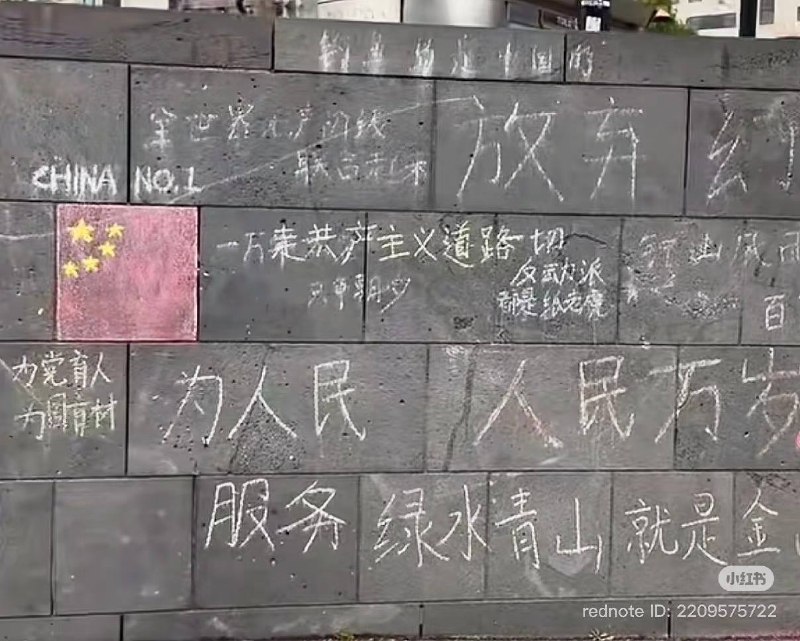 中国
全世界无产阶级
联合起来
放弃幻
CHINA NO.1
一万桒共产主义道路一切
反动派
都是纸老虎
只争朝夕
山风雨
百
为党育人
为国育材
为人民
人民万岁
服务
绿水青山就是金
小红书
rednote ID: 2209575722